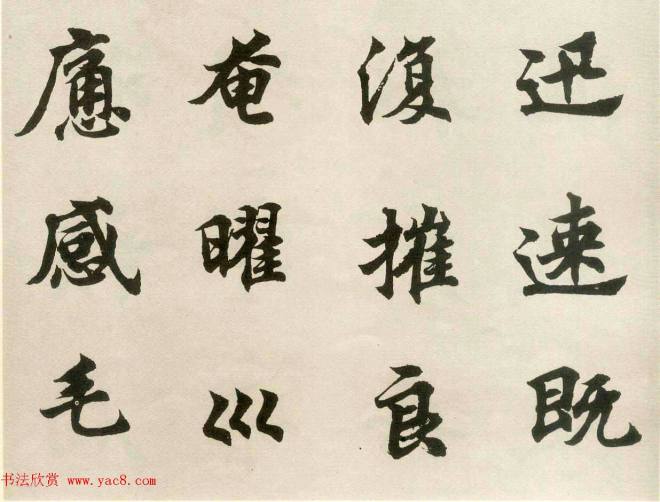 迅速既
復摧良
奄曜巛
應感毛
书法欣赏 www.yac8.com